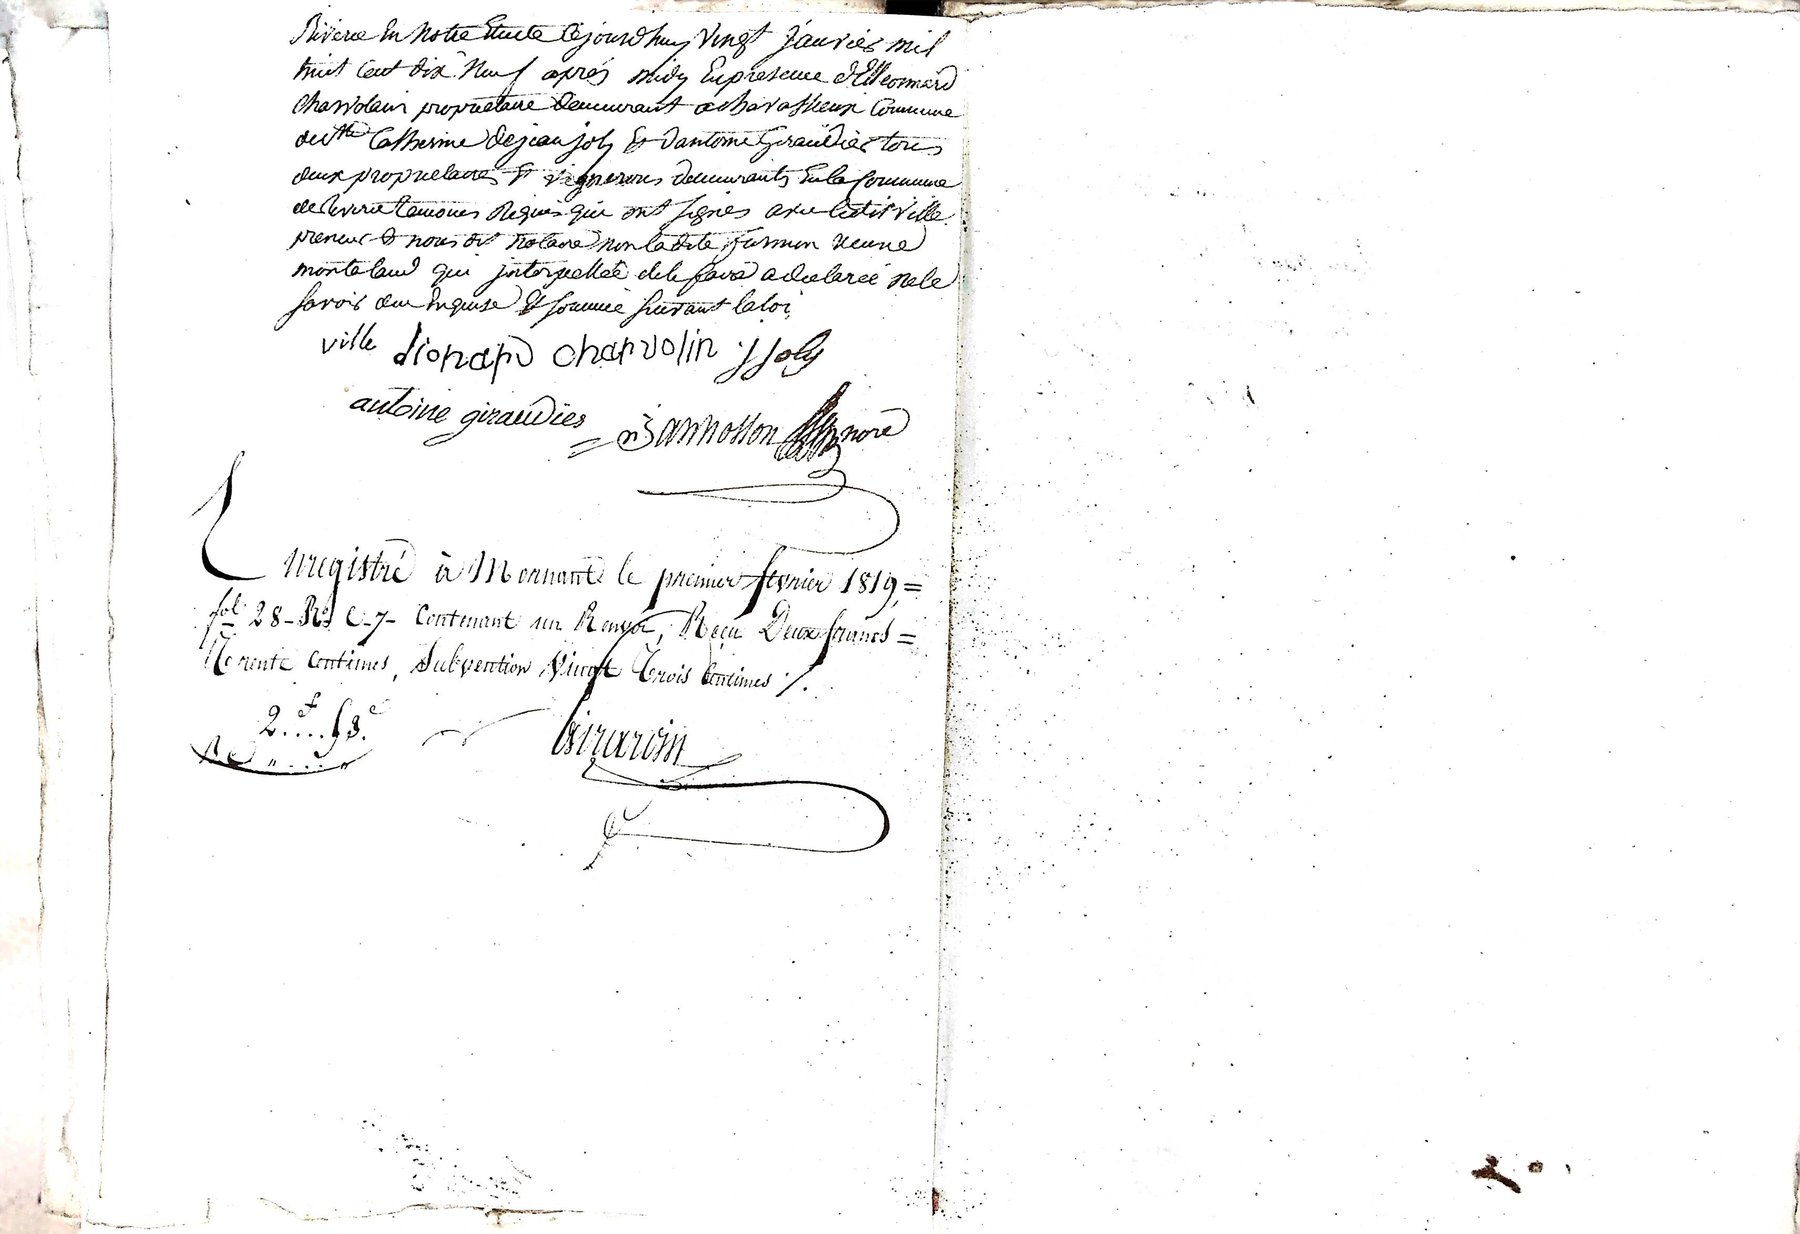 Riverie En notre Etude Cejourdhuy Vingt Janvier mil
huit Cent dix Neuf après midy En presence d'Eleonnard
Charvolain proprietaire demeurant a Commune
de Ste Catherine de jean joly Et d'antoine Giraudier tous
deux proprietaires Et vignerons demeurants En la Commune
de Riverie temoins Requis qui ont signés avec ledit Ville
preneur Et nous dit Notaire non ladite veuve
qui interpellée de le faire a declareé ne le
savoir dem Enquise Et sommée suivant la loi,
ville lionard charvolin j joly
antoine giraudier nore
Enregistré à Mornant le premier février 1819,=
fol 28-Ro. C-7- Contenant un Renvoi, Reçu Deux francs=
Trente Centimes, Subvention Vingt Trois Centimes ./.
2f....53c.
Girardin